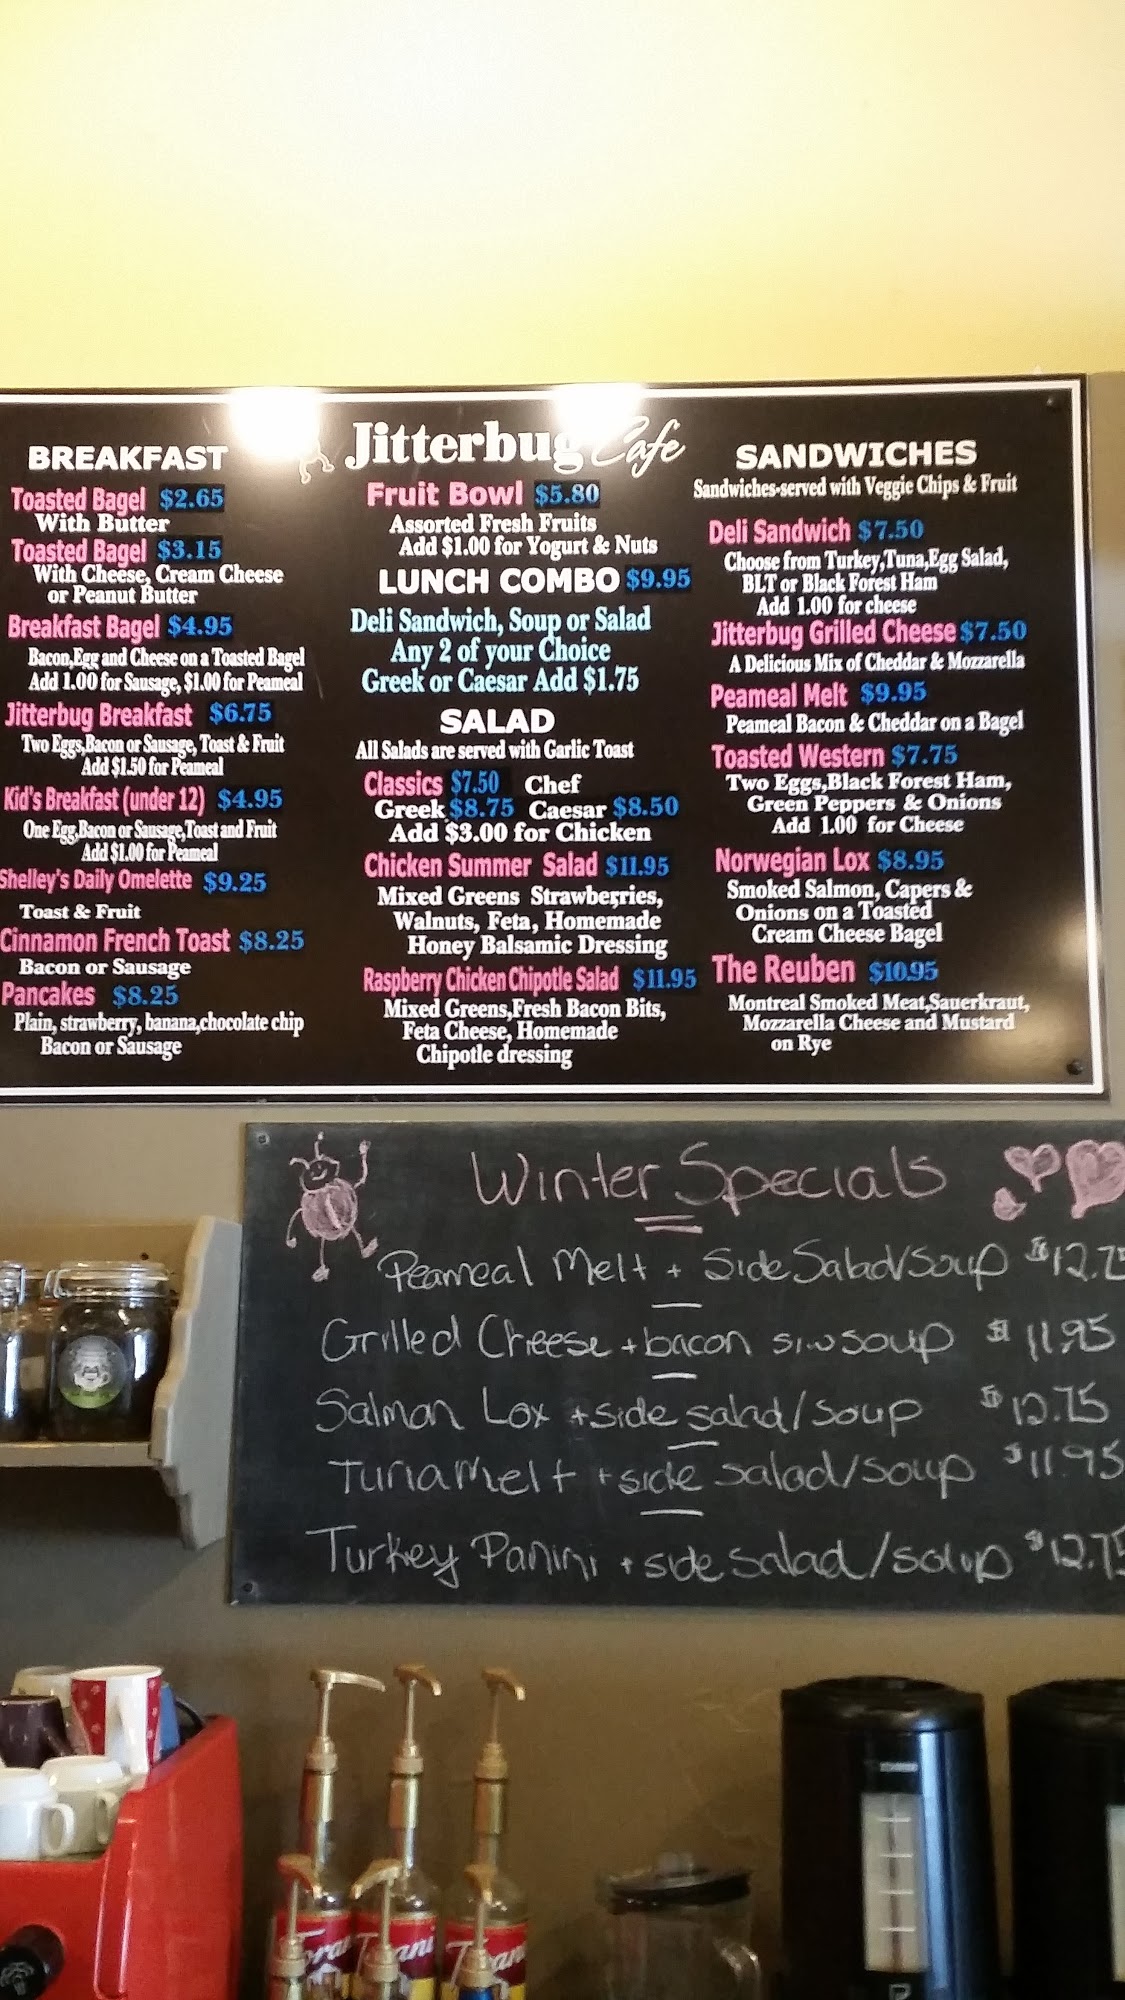 Jitterbug Cafe
BREAKFAST
Toasted Bagel $2.65
With Butter
Toasted Bagel $3.15
With Cheese, Cream Cheese
or Peanut Butter
Breakfast Bagel $4.95
Bacon,Egg and Cheese on a Toasted Bagel
Add 1.00 for Sausage, $1.00 for Peameal
Jitterbug Breakfast $6.75
Two Eggs,Bacon or Sausage, Toast & Fruit
Add $1.50 for Peameal
Kid's Breakfast (under 12) $4.95
One Egg,Bacon or Sausage,Toast and Fruit
Add $1.00 for Peameal
Shelley's Daily Omelette $9.25
Toast & Fruit
Cinnamon French Toast $8.25
Bacon or Sausage
Pancakes $8.25
Plain, strawberry, banana,chocolate chip
Bacon or Sausage
Fruit Bowl $5.80
Assorted Fresh Fruits
Add $1.00 for Yogurt & Nuts
LUNCH COMBO $9.95
Deli Sandwich, Soup or Salad
Any 2 of your Choice
Greek or Caesar Add $1.75
SALAD
All Salads are served with Garlic Toast
Classics $7.50 Chef
Greek $8.75 Caesar $8.50
Add $3.00 for Chicken
Chicken Summer Salad $11.95
Mixed Greens Strawberries,
Walnuts, Feta, Homemade
Honey Balsamic Dressing
Raspberry Chicken Chipotle Salad $11.95
Mixed Greens,Fresh Bacon Bits,
Feta Cheese, Homemade
Chipotle dressing
SANDWICHES
Sandwiches-served with Veggie Chips & Fruit
Deli Sandwich $7.50
Choose from Turkey,Tuna,Egg Salad,
BLT or Black Forest Ham
Add 1.00 for cheese
Jitterbug Grilled Cheese $7.50
A Delicious Mix of Cheddar & Mozzarella
Peameal Melt $9.95
Peameal Bacon & Cheddar on a Bagel
Toasted Western $7.75
Two Eggs,Black Forest Ham,
Green Peppers & Onions
Add 1.00 for Cheese
Norwegian Lox $8.95
Smoked Salmon, Capers &
Onions on a Toasted
Cream Cheese Bagel
The Reuben $10.95
Montreal Smoked Meat,Sauerkraut,
Mozzarella Cheese and Mustard
on Rye
Winter Specials
Peameal Melt + Side Salad/Soup $12.75
Grilled Cheese + bacon soup $11.95
Salmon Lox + side salad/soup $12.75
Tuna Melt + side salad/soup $11.95
Turkey Panini + side salad/soup $12.75
Torani
Torani
Torani